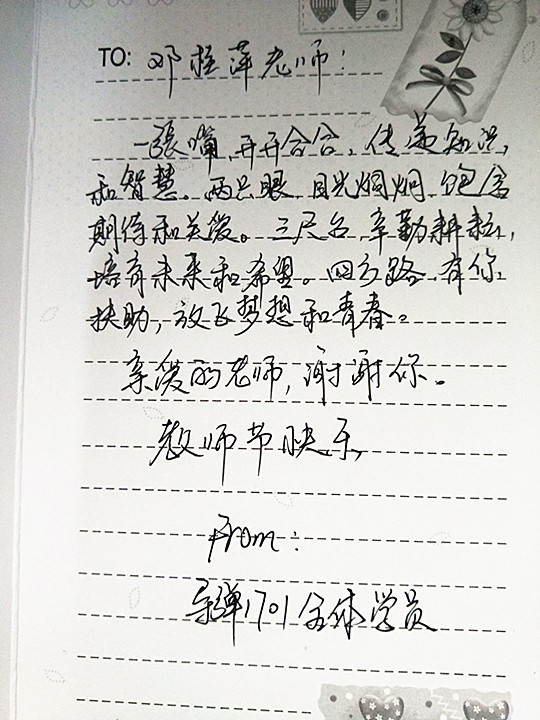 TO: 邓桂萍老师:
一张嘴,开开合合,传递知识,
和智慧。两只眼,目光炯炯,饱含
期待和关爱。三尺台,辛勤耕耘,
培育未来和希望。四方路,有你,
扶助,放飞梦想和青春。
亲爱的老师,谢谢你。
教师节快乐
From:
导弹1701全体学员